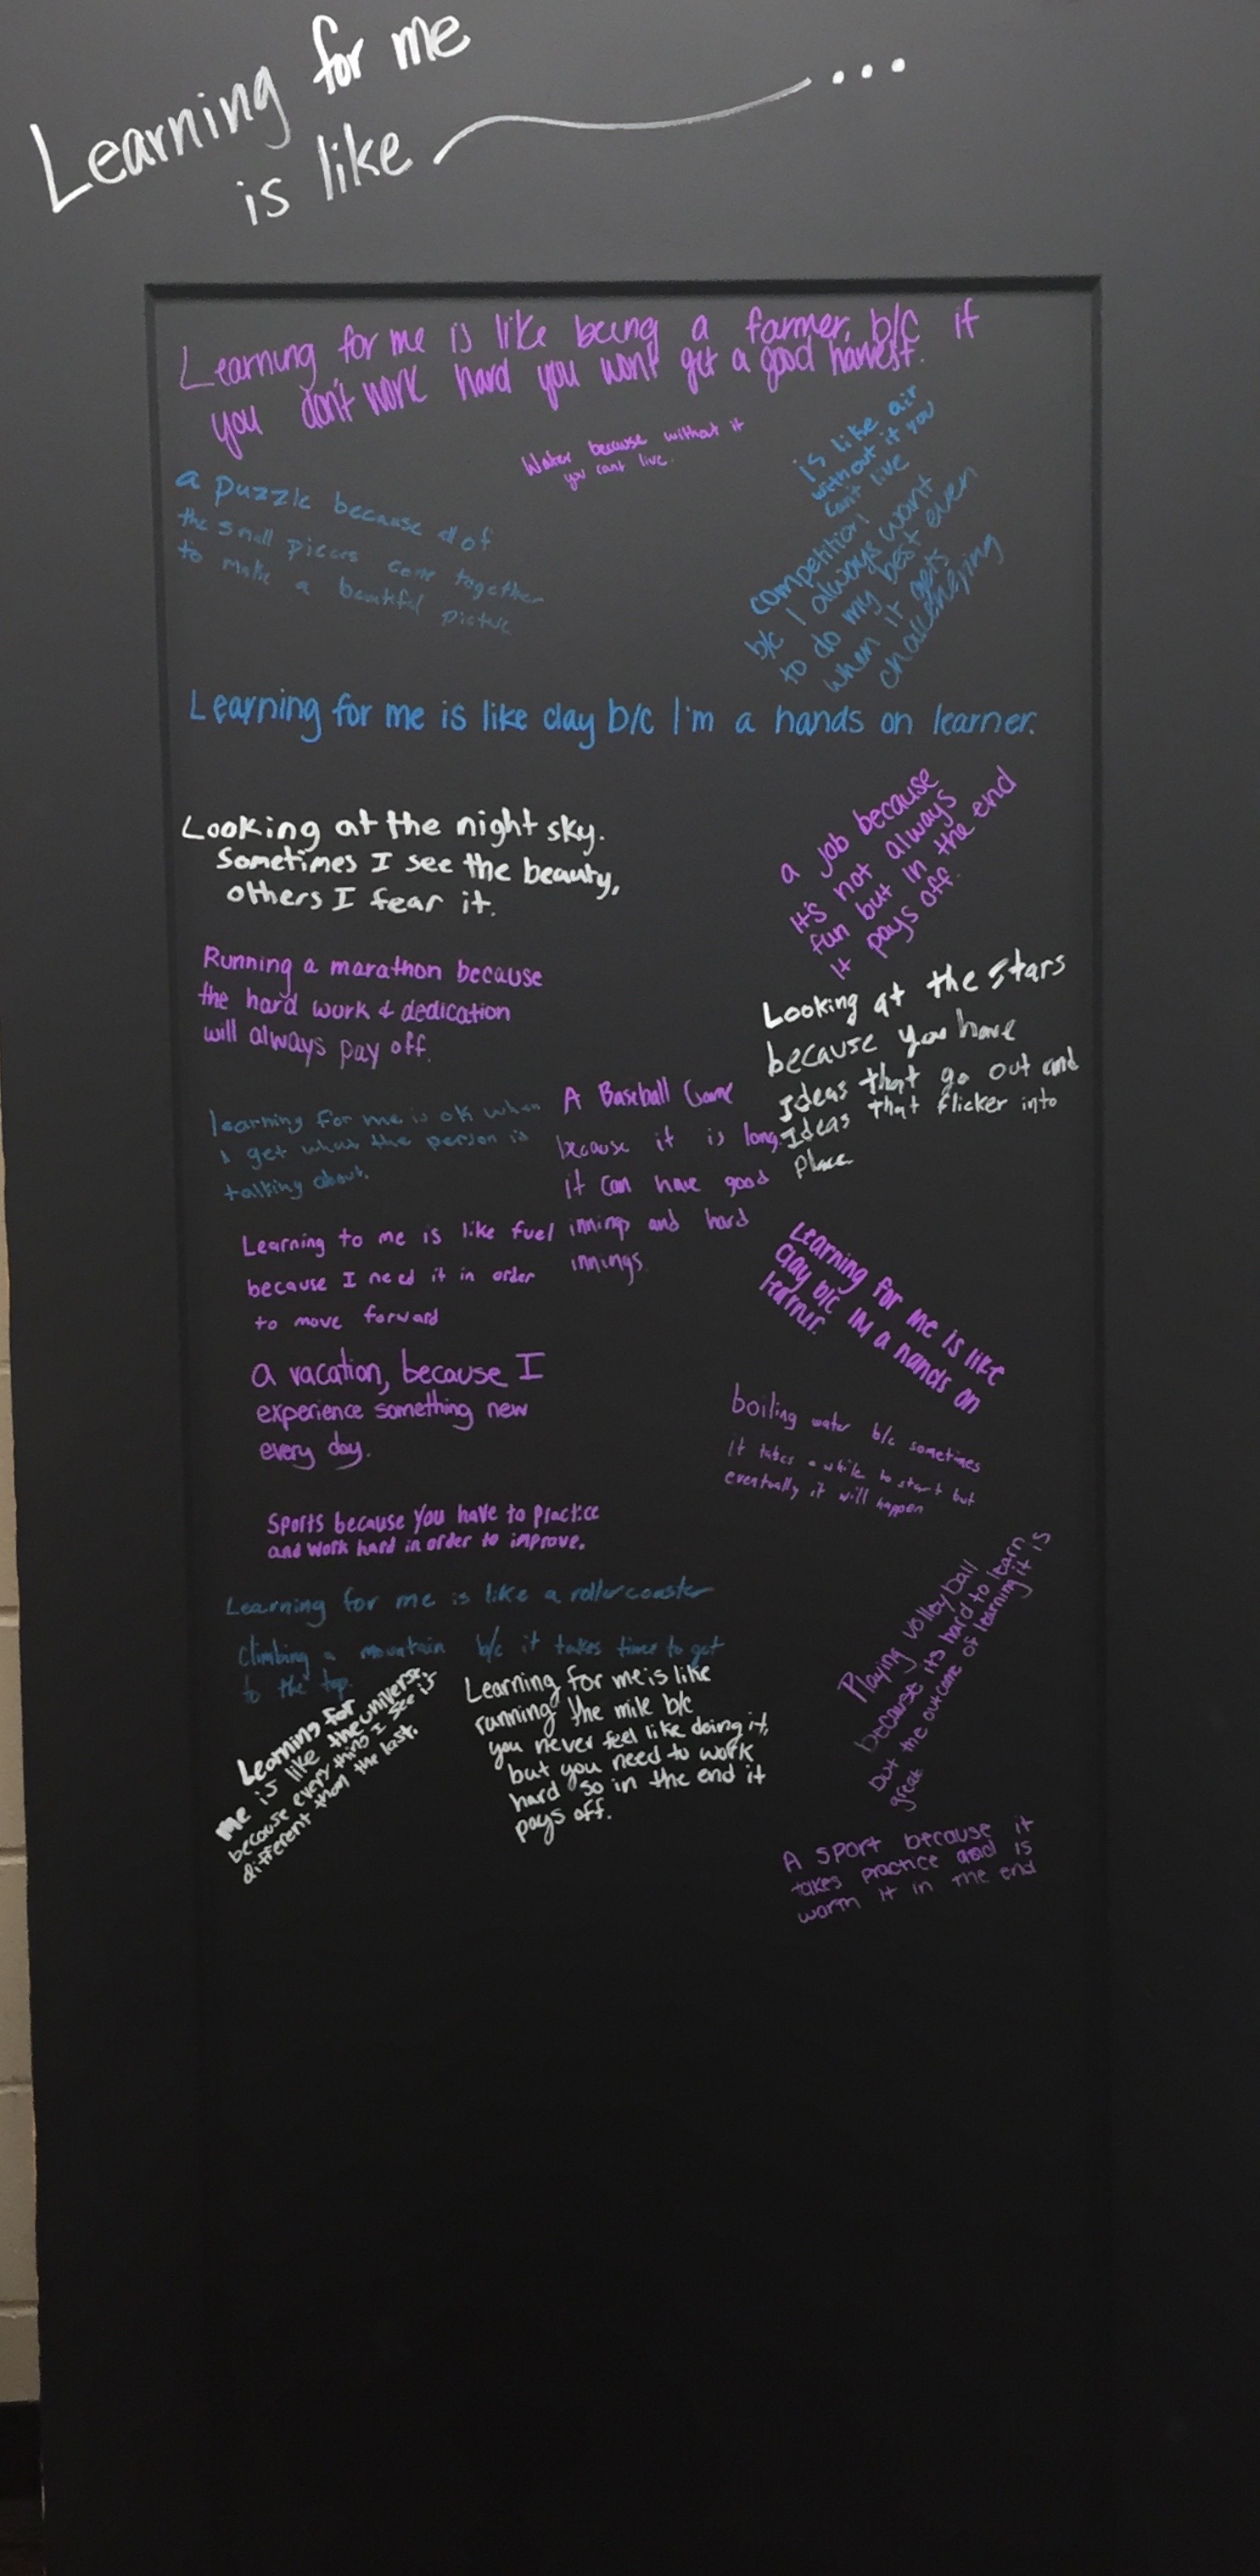 Learning for me
is like ______...
Learning for me is like being a farmer, b/c if
you don't work hard you won't get a good harvest.
Water because without it
you cant live.
is like air
without it you
can't live
a puzzle because all of
the small pieces come together
to make a beautiful picture
competition!
b/c I always want
to do my best even
when it gets
challenging
Learning for me is like clay b/c I'm a hands on learner.
Looking at the night sky.
Sometimes I see the beauty,
others I fear it.
a job because
it's not always
fun but in the end
it pays off.
Running a marathon because
the hard work & dedication
will always pay off.
Looking at the stars
because you have
Ideas that go out and
Ideas that flicker into
place
learning for me is ok when
I get what the person is
talking about.
A Baseball Game
because it is long.
it can have good
innings and hard
innings.
Learning to me is like fuel
because I need it in order
to move forward
Learning for me is like
clay b/c IM a hands on
learner.
a vacation, because I
experience something new
every day.
boiling water b/c sometimes
it takes a while to start but
eventually it will happen
Sports because you have to practice
and work hard in order to improve.
Learning for me is like a rollercoaster
Climbing a mountain b/c it takes time to get
to the top.
Playing volleyball
because its hard to learn
but the outcome of learning it is
great
Learning for
me is like the universe,
because every thing I see is
different than the last.
Learning for me is like
running the mile b/c
you never feel like doing it,
but you need to work
hard so in the end it
pays off.
A sport because it
takes practice and is
worth it in the end